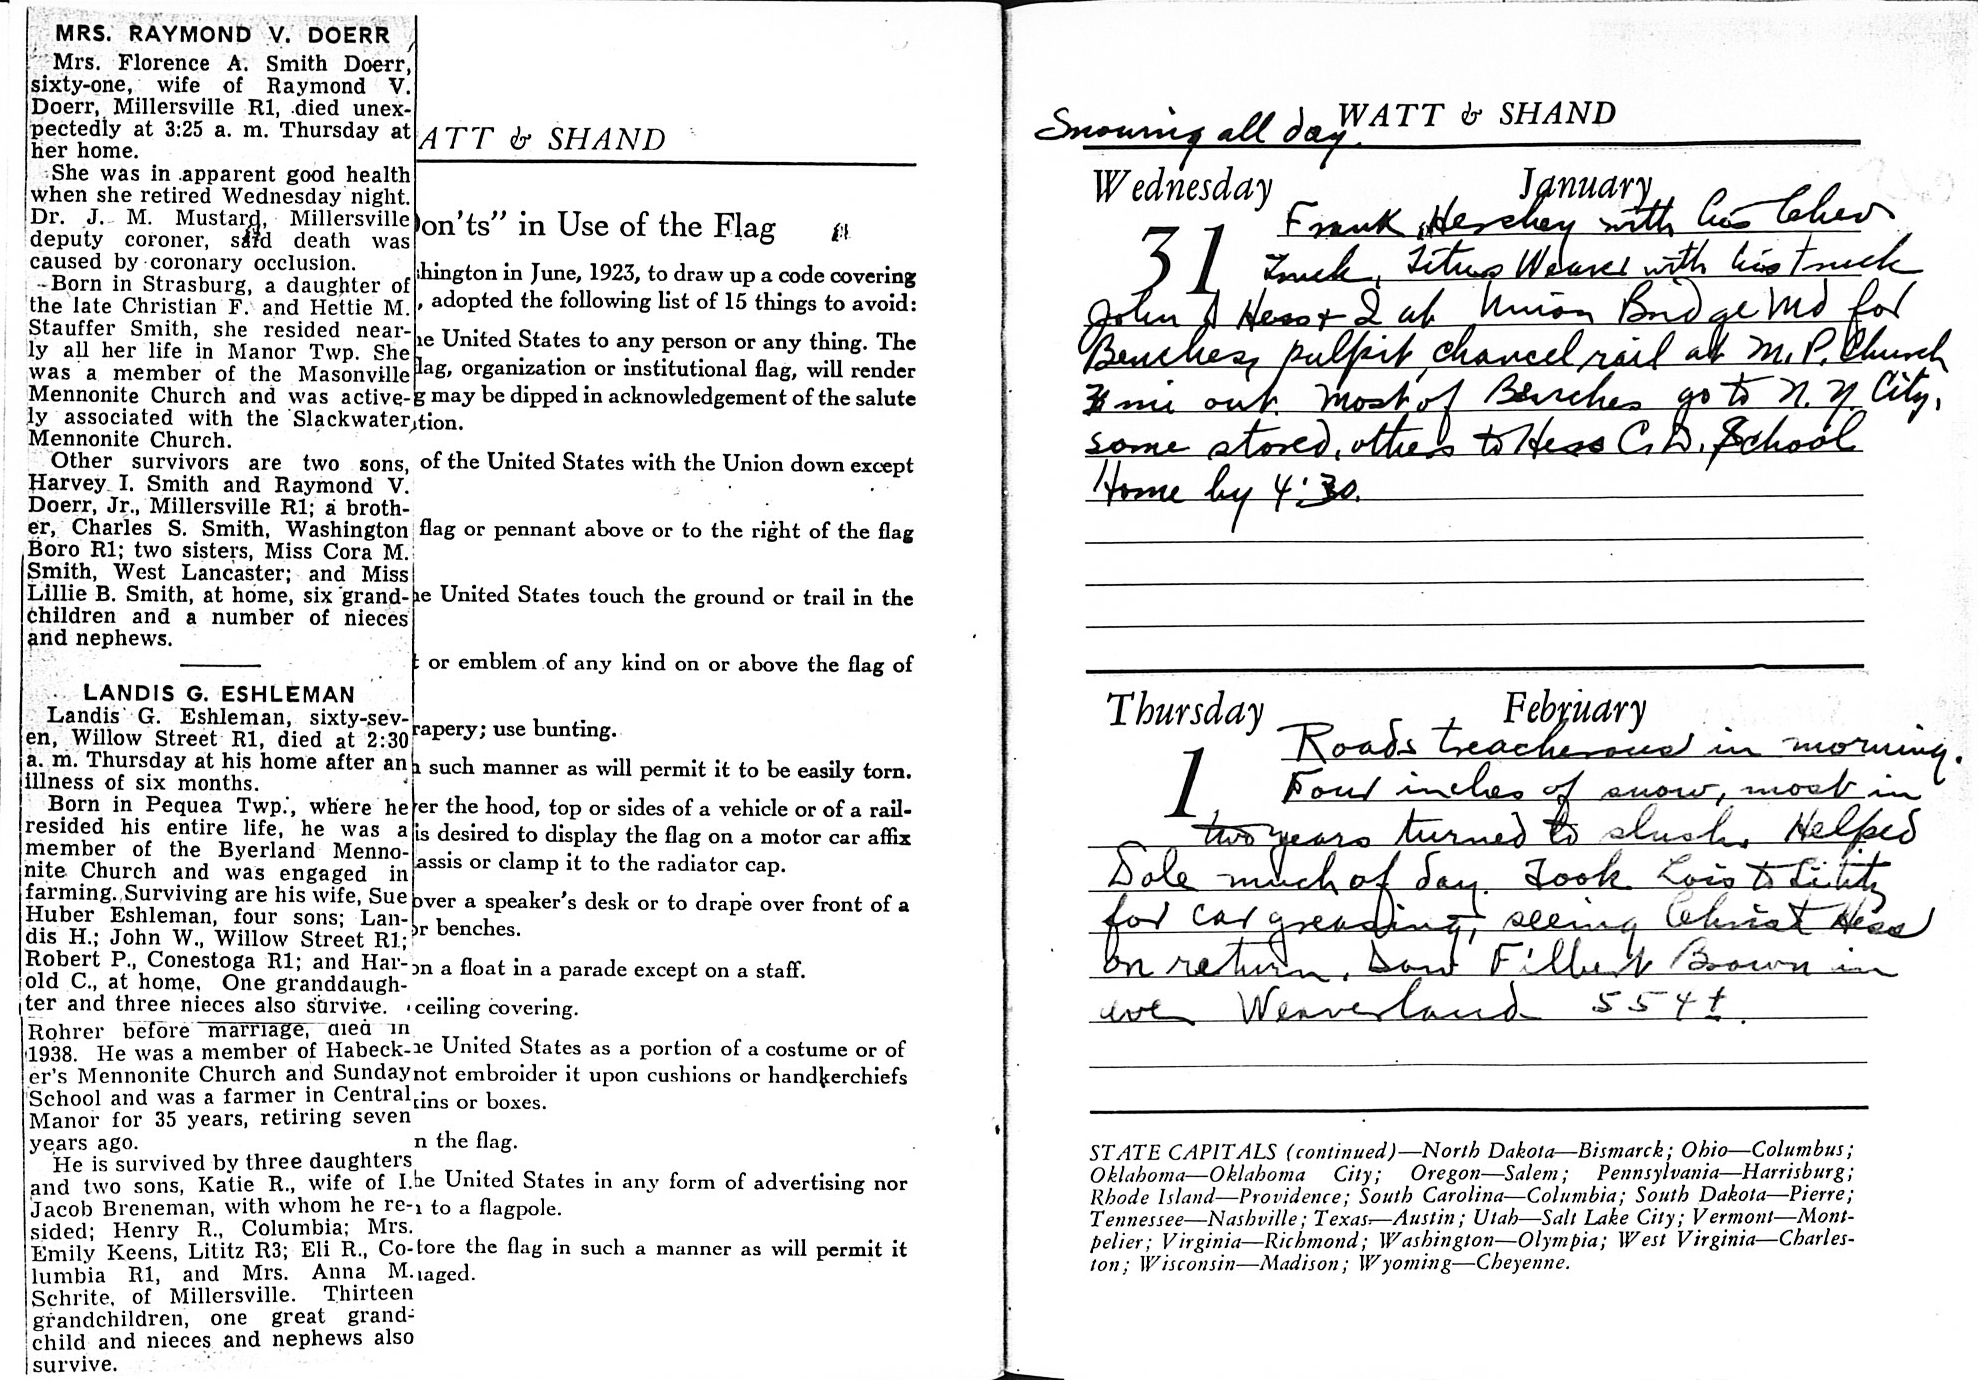 MRS. RAYMOND V. DOERR
Mrs. Florence A. Smith Doerr,
sixty-one, wife of Raymond V.
Doerr, Millersville R1, died unex-
pectedly at 3:25 a. m. Thursday at
her home.
She was in apparent good health
when she retired Wednesday night.
Dr. J. M. Mustard, Millersville
deputy coroner, said death was
caused by coronary occlusion.
Born in Strasburg, a daughter of
the late Christian F. and Hettie M.
Stauffer Smith, she resided near-
ly all her life in Manor Twp. She
was a member of the Masonville
Mennonite Church and was active-
ly associated with the Slackwater
Mennonite Church.
Other survivors are two sons,
Harvey I. Smith and Raymond V.
Doerr, Jr., Millersville R1; a broth-
er, Charles S. Smith, Washington
Boro R1; two sisters, Miss Cora M.
Smith, West Lancaster; and Miss
Lillie B. Smith, at home, six grand-
children and a number of nieces
and nephews.
LANDIS G. ESHLEMAN
Landis G. Eshleman, sixty-sev-
en, Willow Street R1, died at 2:30
a. m. Thursday at his home after an
illness of six months.
Born in Pequea Twp., where he
resided his entire life, he was a
member of the Byerland Menno-
nite Church and was engaged in
farming. Surviving are his wife, Sue
Huber Eshleman, four sons; Lan-
dis H.; John W., Willow Street R1;
Robert P., Conestoga R1; and Har-
old C., at home. One granddaugh-
ter and three nieces also survive.
Rohrer before marriage, died in
1938. He was a member of Habeck-
er's Mennonite Church and Sunday
School and was a farmer in Central
Manor for 35 years, retiring seven
years ago.
He is survived by three daughters
and two sons, Katie R., wife of I.
Jacob Breneman, with whom he re-
sided; Henry R., Columbia; Mrs.
Emily Keens, Lititz R3; Eli R., Co-
lumbia R1, and Mrs. Anna M.
Schrite, of Millersville. Thirteen
grandchildren, one great grand-
child and nieces and nephews also
survive.
ATT & SHAND
on'ts" in Use of the Flag
hington in June, 1923, to draw up a code covering
, adopted the following list of 15 things to avoid:
he United States to any person or any thing. The
lag, organization or institutional flag, will render
g may be dipped in acknowledgement of the salute
tion.
of the United States with the Union down except
flag or pennant above or to the right of the flag
he United States touch the ground or trail in the
t or emblem of any kind on or above the flag of
rapery; use bunting.
such manner as will permit it to be easily torn.
er the hood, top or sides of a vehicle or of a rail-
is desired to display the flag on a motor car affix
assis or clamp it to the radiator cap.
over a speaker's desk or to drape over front of a
or benches.
on a float in a parade except on a staff.
ceiling covering.
he United States as a portion of a costume or of
not embroider it upon cushions or handkerchiefs
kins or boxes.
n the flag.
he United States in any form of advertising nor
to a flagpole.
tore the flag in such a manner as will permit it
aged.
WATT & SHAND
Snowing all day.
Wednesday January
31
Frank Hershey with his Chev
truck, Titus Weaver with his truck
John D Hess + I at Union Bridge Md for
Benches, pulpit, chancel rail at M.P. Church
mi out. Most of Benches go to N.Y. City,
some stored, others to Hess C.D. School
Home by 4:30.
Thursday February
1
Roads treacherous in morning.
Four inches of snow, most in
two years turned to slush. Helped
Dale much of day. Took Lois to Lititz
for car greasing, seeing Christ Hess
on return. Saw Filbert Brown in
eve Weaverland 554±.
STATE CAPITALS (continued)—North Dakota—Bismarck; Ohio—Columbus;
Oklahoma—Oklahoma City; Oregon—Salem; Pennsylvania—Harrisburg;
Rhode Island—Providence; South Carolina—Columbia; South Dakota—Pierre;
Tennessee—Nashville; Texas—Austin; Utah—Salt Lake City; Vermont—Mont-
pelier; Virginia—Richmond; Washington—Olympia; West Virginia—Charles-
ton; Wisconsin—Madison; Wyoming—Cheyenne.